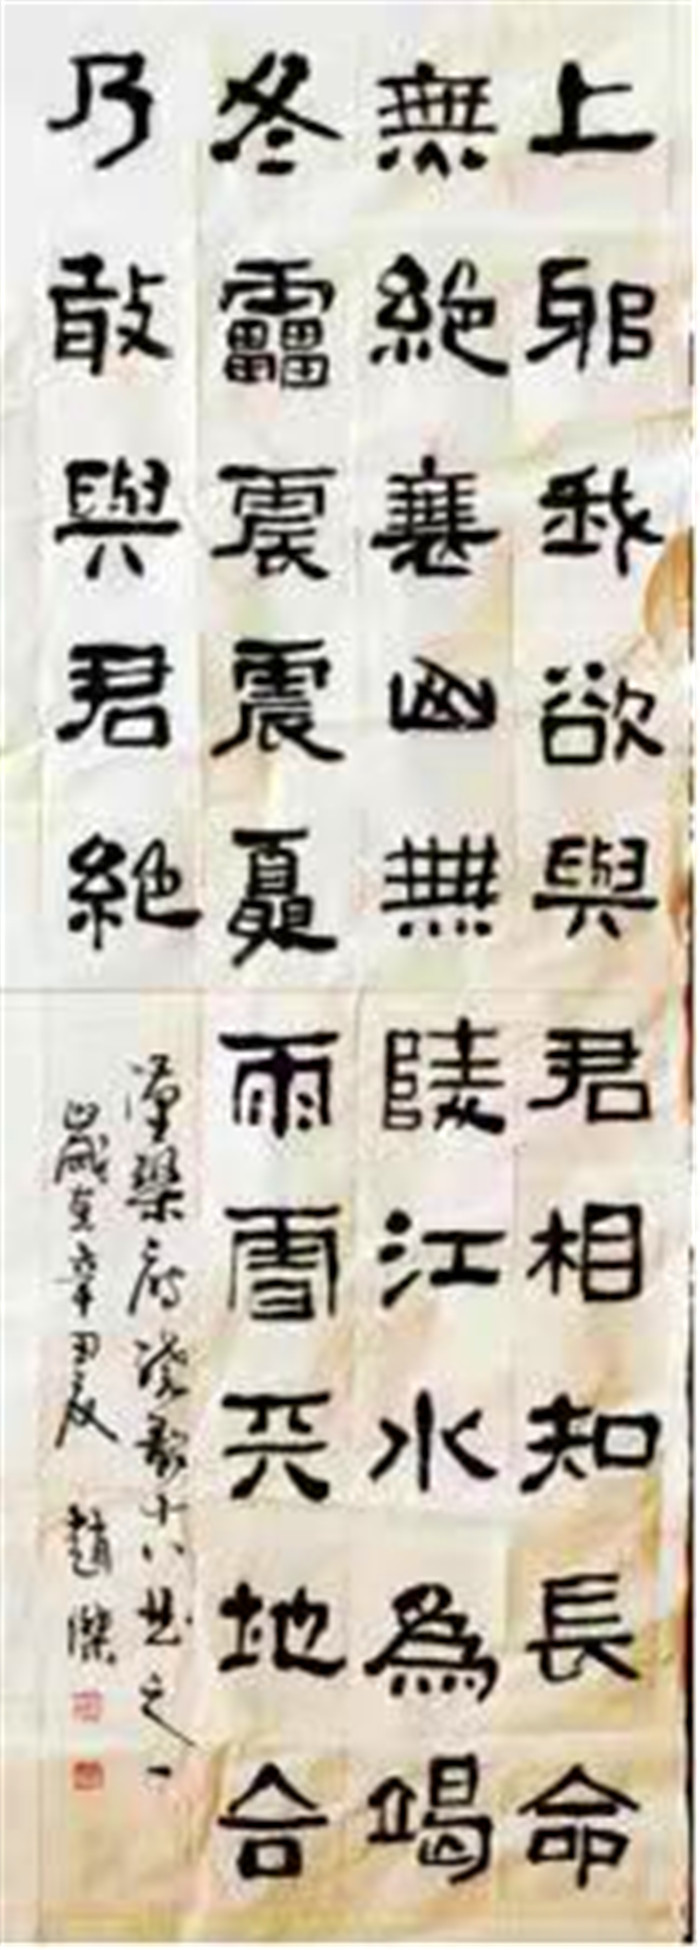 上邪我欲與君相知長命
無絕衰山無陵江水為竭
冬靁震震夏雨雪天地合
乃敢與君絕
漢樂府鐃歌十八曲之一
歲在辛夏 趙傑